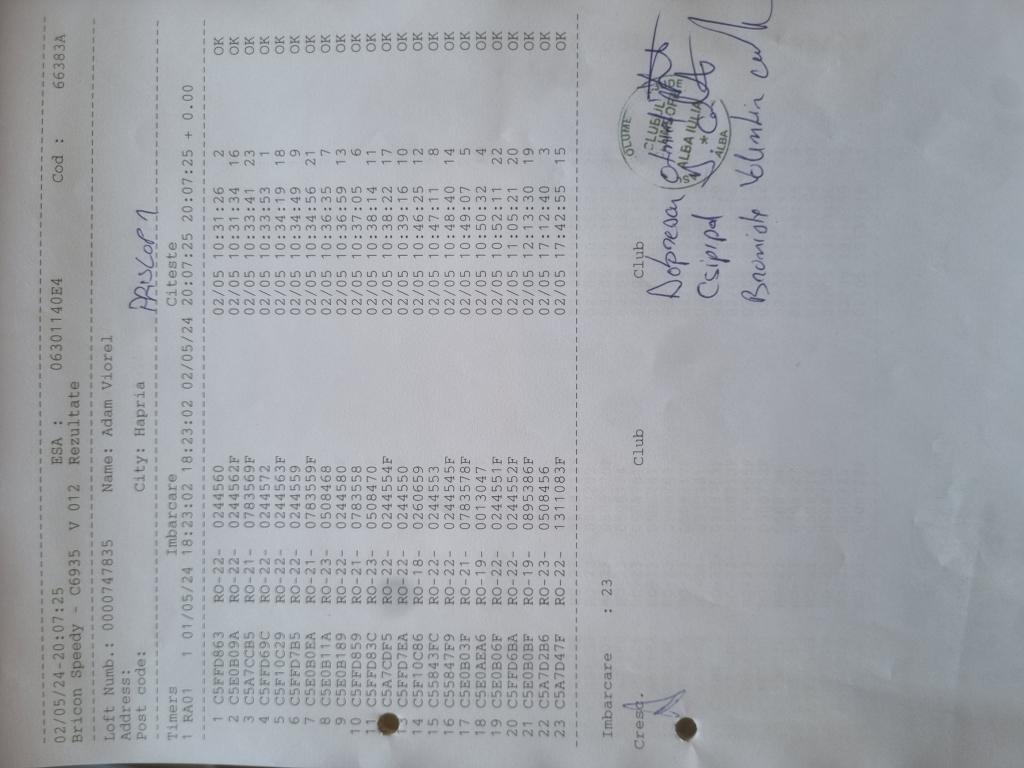 02/05/24-20:07:25 ESA : 06301140E4 Cod : 66383A
Bricon Speedy - C6935 V 012 Rezultate
Loft Numb.: 0000747835 Name: Adam Viorel
Address:
Post code: City: Hapria
PRISLOP 1
Timers Imbarcare Citeste
1 RA01 1 01/05/24 18:23:02 18:23:02 02/05/24 20:07:25 20:07:25 + 0.00
1 C5FFD863 RO-22- 0244560 02/05 10:31:26 2 OK
2 C5E0B09A RO-22- 0244562F 02/05 10:31:34 16 OK
3 C5A7CCB5 RO-21- 0783569F 02/05 10:33:41 23 OK
4 C5FFD69C RO-22- 0244572 02/05 10:33:53 1 OK
5 C5F10C29 RO-22- 0244563F 02/05 10:34:19 18 OK
6 C5FFD7B5 RO-22- 0244559 02/05 10:34:49 9 OK
7 C5E0B0EA RO-21- 0783559F 02/05 10:34:56 21 OK
8 C5E0B11A RO-23- 0508468 02/05 10:36:35 7 OK
9 C5E0B189 RO-22- 0244580 02/05 10:36:59 13 OK
10 C5FFD859 RO-21- 0783558 02/05 10:37:05 6 OK
11 C5FFD83C RO-23- 0508470 02/05 10:38:14 11 OK
C5A7CDF5 RO-22- 0244554F 02/05 10:38:22 17 OK
13 C5FFD7EA RO-22- 0244550 02/05 10:39:16 10 OK
14 C5F10C86 RO-18- 0260659 02/05 10:46:25 12 OK
15 C55843FC RO-22- 0244553 02/05 10:47:11 8 OK
16 C55847F9 RO-22- 0244545F 02/05 10:48:40 14 OK
17 C5E0B03F RO-21- 0783578F 02/05 10:49:07 5 OK
18 C5E0AEA6 RO-19- 0013047 02/05 10:50:32 4 OK
19 C5E0B06F RO-22- 0244551F 02/05 10:52:11 22 OK
20 C5FFD6BA RO-22- 0244552F 02/05 11:05:21 20 OK
21 C5E0B0BF RO-19- 0895386F 02/05 12:13:30 19 OK
22 C5A7D2B6 RO-23- 0508456 02/05 17:12:40 3 OK
23 C5A7D47F RO-22- 1311083F 02/05 17:42:55 15 OK
Imbarcare : 23
Cresc. Club Club
CLUBUL
ALBA IULIA
ALBA